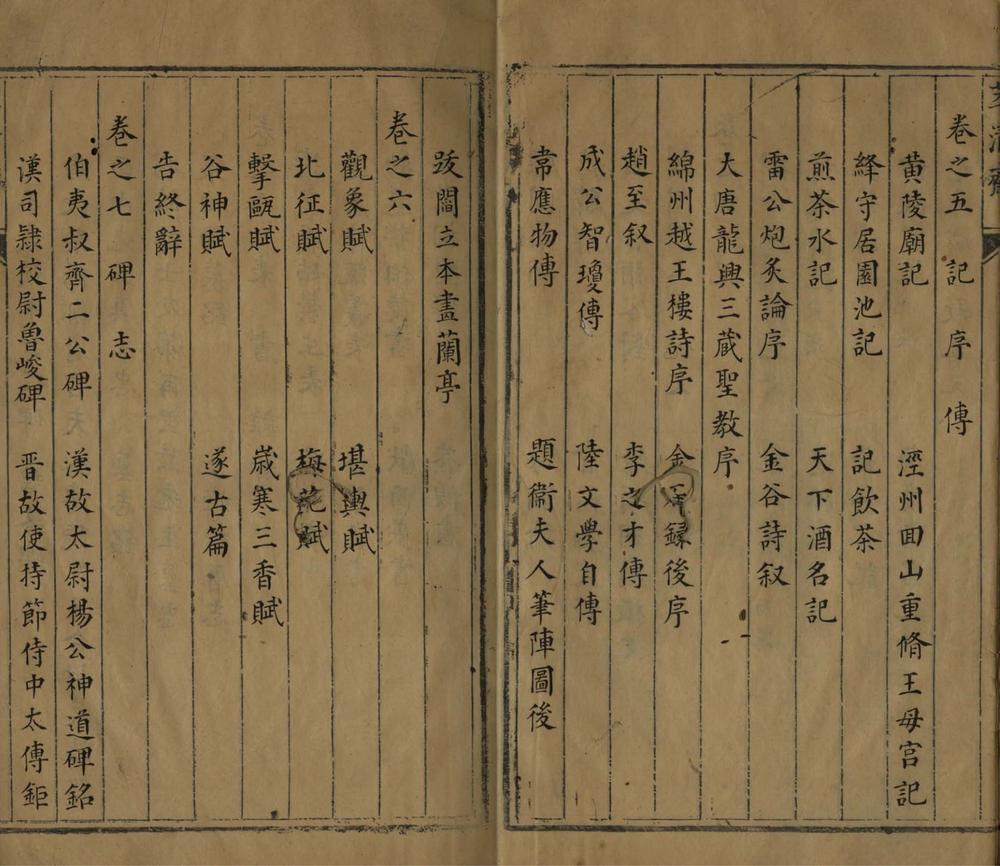 卷之五 記 序 傳
黄陵廟記 涇州囬山重脩王母宫記
絳守居園池記 記飲茶
煎茶水記 天下酒名記
雷公炮炙論序 金谷詩叙
大唐龍興三藏聖教序
綿州越王樓詩序 金石録後序
趙至叙 李之才傳
成公智瓊傳 陸文學自傳
韋應物傳 題衞夫人筆陣圖後
跋閻立本畫蘭亭
卷之六
觀象賦 堪輿賦
北征賦 梅花賦
擊甌賦 歳寒三香賦
谷神賦 遂古篇
告終辭
卷之七 碑 志
伯夷叔齊二公碑 漢故太尉楊公神道碑銘
漢司隸校尉魯峻碑 晋故使持節侍中太傅鉅